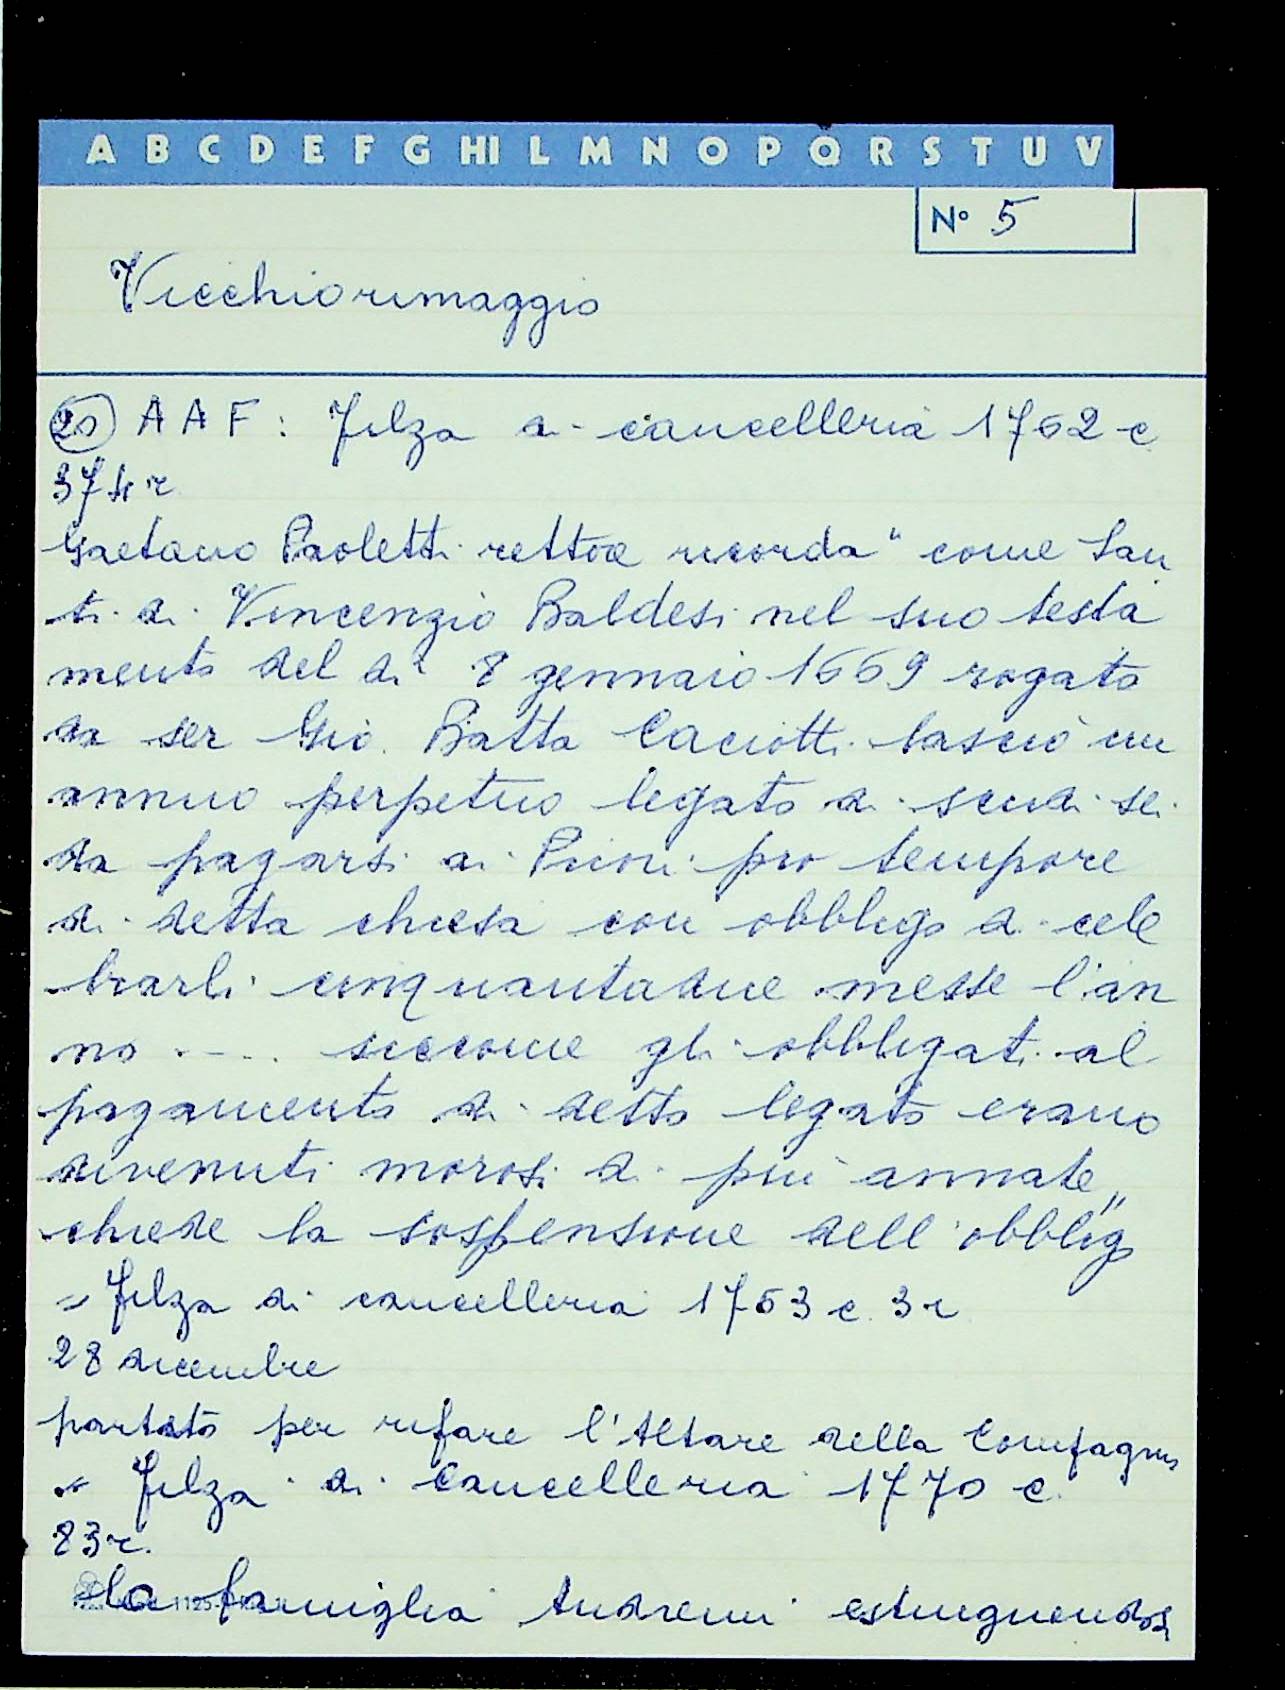 A B C D E F G HI L M N O P Q R S T U V
N° 5
Vicchiorimaggio
20 A A F : Filza di cancelleria 1762 c
374 r
Gaetano Paoletti rettore ricorda " come San
ti di Vincenzio Baldesi nel suo testa
mento del dì 8 gennaio 1669 rogato
da ser Gio. Batta Caciotti lasciò un
annuo perpetuo legato di scudi sei
da pagarsi ai Priori pro tempore
di detta chiesa con obbligo di cele
brarli cinquantadue messe l'an
no .... siccome gli obbligati al
pagamento di detto legato erano
divenuti morosi di più annate "
chiede la sospensione dell'obbligo
= Filza di cancelleria 1763 c. 3r
28 dicembre
partito per rifare l'Altare della Compagnia
= Filza di Cancelleria 1770 c.
83r.
la famiglia Andreini estinguendosi